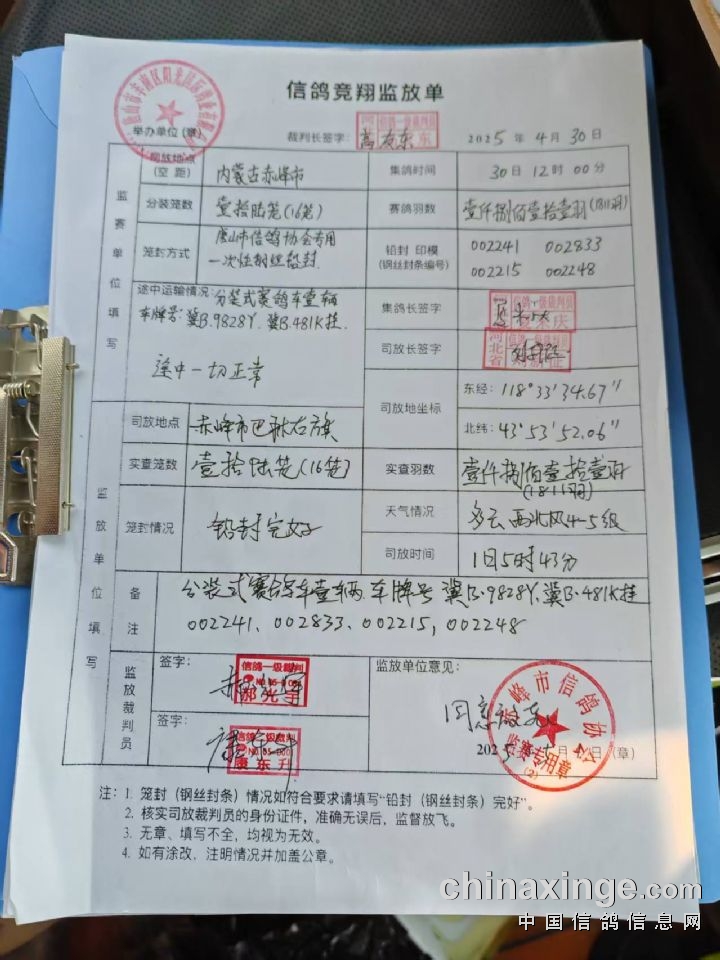 信鸽竞翔监放单
举办单位（章）
裁判长签字： 2025 年 4 月 30 日
监赛单位填写
司放地点（空距） 内蒙古赤峰市 集鸽时间 30日 12时 00分
分装笼数 壹拾陆笼(16笼) 赛鸽羽数 壹仟捌佰壹拾壹羽(1811羽)
笼封方式 唐山市信鸽协会专用
一次性钢丝铅封
铅封 印模
(钢丝封条编号)
002241 002833
002215 002248
途中运输情况：分装式赛鸽车壹辆
车牌号:冀B.9828Y.冀B.481K挂.
途中一切正常
集鸽长签字
司放长签字
河北省
司放地坐标
东经：118°33'34.67"
北纬：43°53'52.06"
监放单位填写
司放地点 赤峰市巴林右旗
实查笼数 壹拾陆笼(16笼) 实查羽数 壹仟捌佰壹拾壹羽
(1811羽)
笼封情况 铅封完好
天气情况 多云 西北风4-5级
司放时间 1日5时43分
备注
分装式赛鸽车壹辆 车牌号 冀B.9828Y.冀B.481K挂
002241、002833、002215，002248
监放裁判员
签字：
信鸽一级裁判
郝光宇
签字：
康东升
监放单位意见：
同意放飞
赤峰市信鸽协会
监赛专用章
(2)
（章）
注：1. 笼封（钢丝封条）情况如符合要求请填写“铅封（钢丝封条）完好”。
2. 核实司放裁判员的身份证件，准确无误后，监督放飞。
3. 无章、填写不全，均视为无效。
4. 如有涂改，注明情况并加盖公章。
chinaxinge.com
中国信鸽信息网